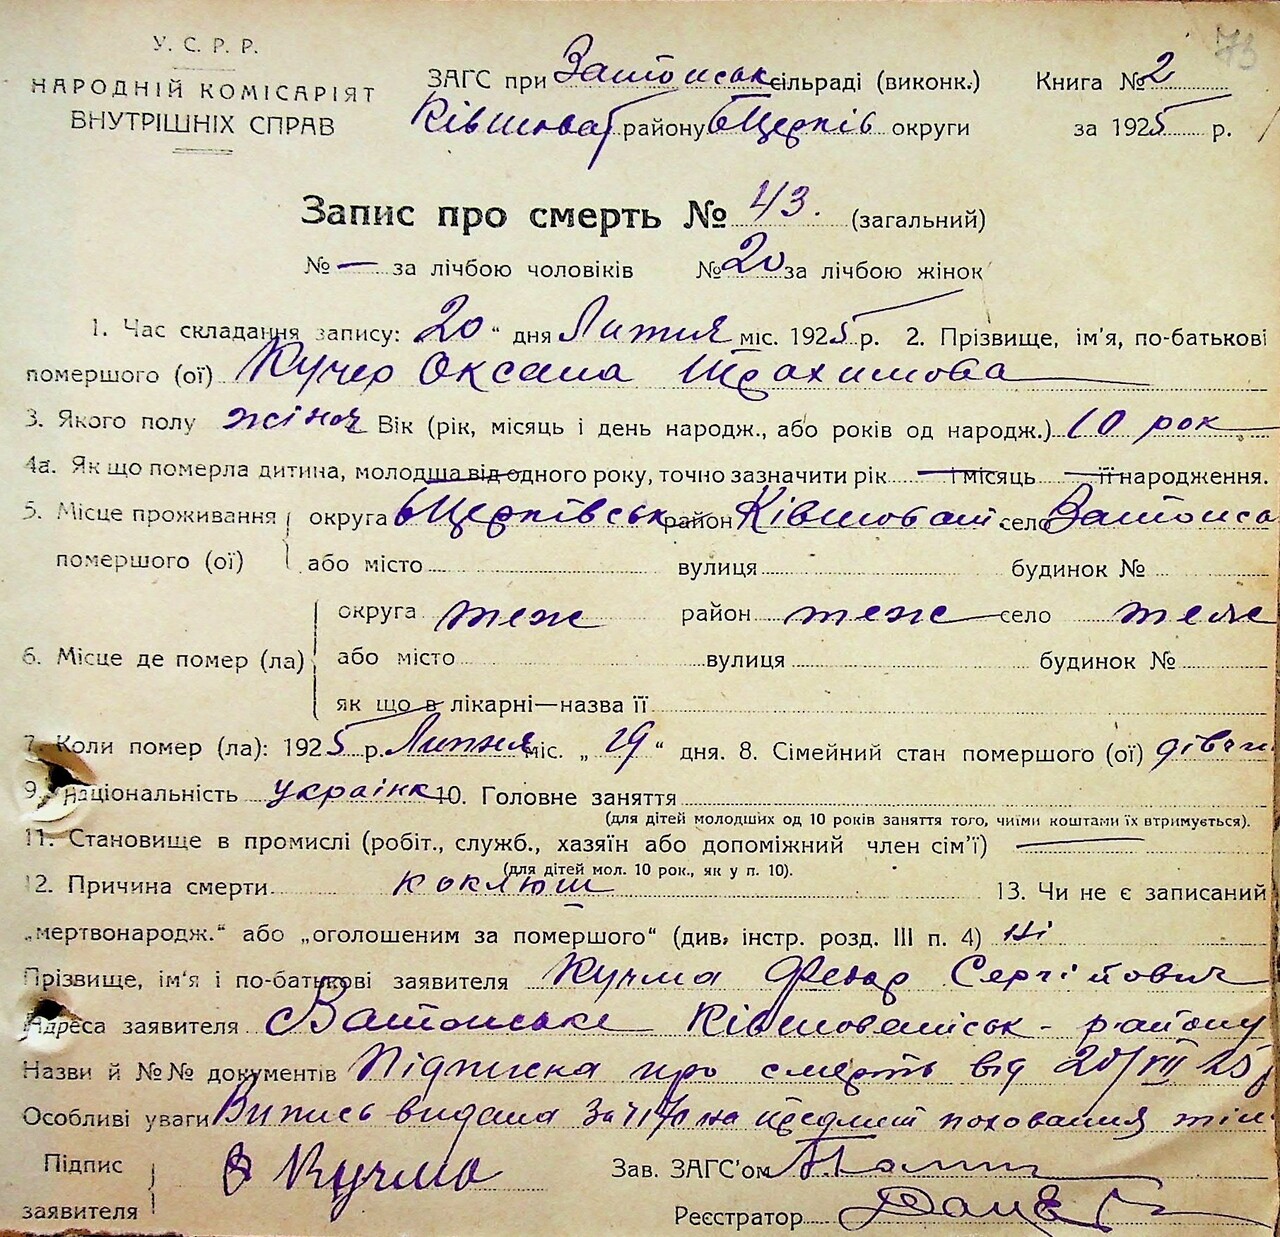 73
У. С. Р. Р.
НАРОДНІЙ КОМІСАРІЯТ
ВНУТРІШНІХ СПРАВ
ЗАГС при Ватонськ сільраді (виконк.) Книга № 2
Ківшоват району бЦерків округи за 1925 р.
Запис про смерть № 43. (загальний)
№ — за лічбою чоловіків № 20 за лічбою жінок
1. Час складання запису: 20 " дня Липня міс. 1925 р. 2. Прізвище, ім'я, по-батькові
помершого (ої) Кучер Оксана Трохимова
3. Якого полу жіноч Вік (рік, місяць і день народж., або років од народж.) 10 рок
4а. Як що померла дитина, молодша від одного року, точно зазначити рік і місяць її народження.
5. Місце проживання помершого (ої) округа бЦерківськ район Ківшоват село Ватонсь
або місто вулиця будинок №
6. Місце де помер (ла) округа теж район теж село теж
або місто вулиця будинок №
як що в лікарні—назва її
7. Коли помер (ла): 1925 р. Липня міс. „ 19 " дня. 8. Сімейний стан помершого (ої) дівчи
9. Національність українк 10. Головне заняття
(для дітей молодших од 10 років заняття того, чиїми коштами їх втримується).
11. Становище в промислі (робіт., служб., хазяїн або допоміжний член сім'ї) —
(для дітей мол. 10 рок., як у п. 10).
12. Причина смерти коклюш 13. Чи не є записаний
„мертвонародж." або „оголошеним за помершого" (див, інстр. розд. III п. 4) ні
Прізвище, ім'я і по-батькові заявителя Кучма Федор Сергійович
Адреса заявителя Ватонське Ківшоватськ - району
Назви й №№ документів Підписка про смерть від 20/VII 25 р
Особливі уваги Випись видана за № на предмет поховання тіл
Підпис заявителя Кучма Зав. ЗАГС'ом
Реєстратор